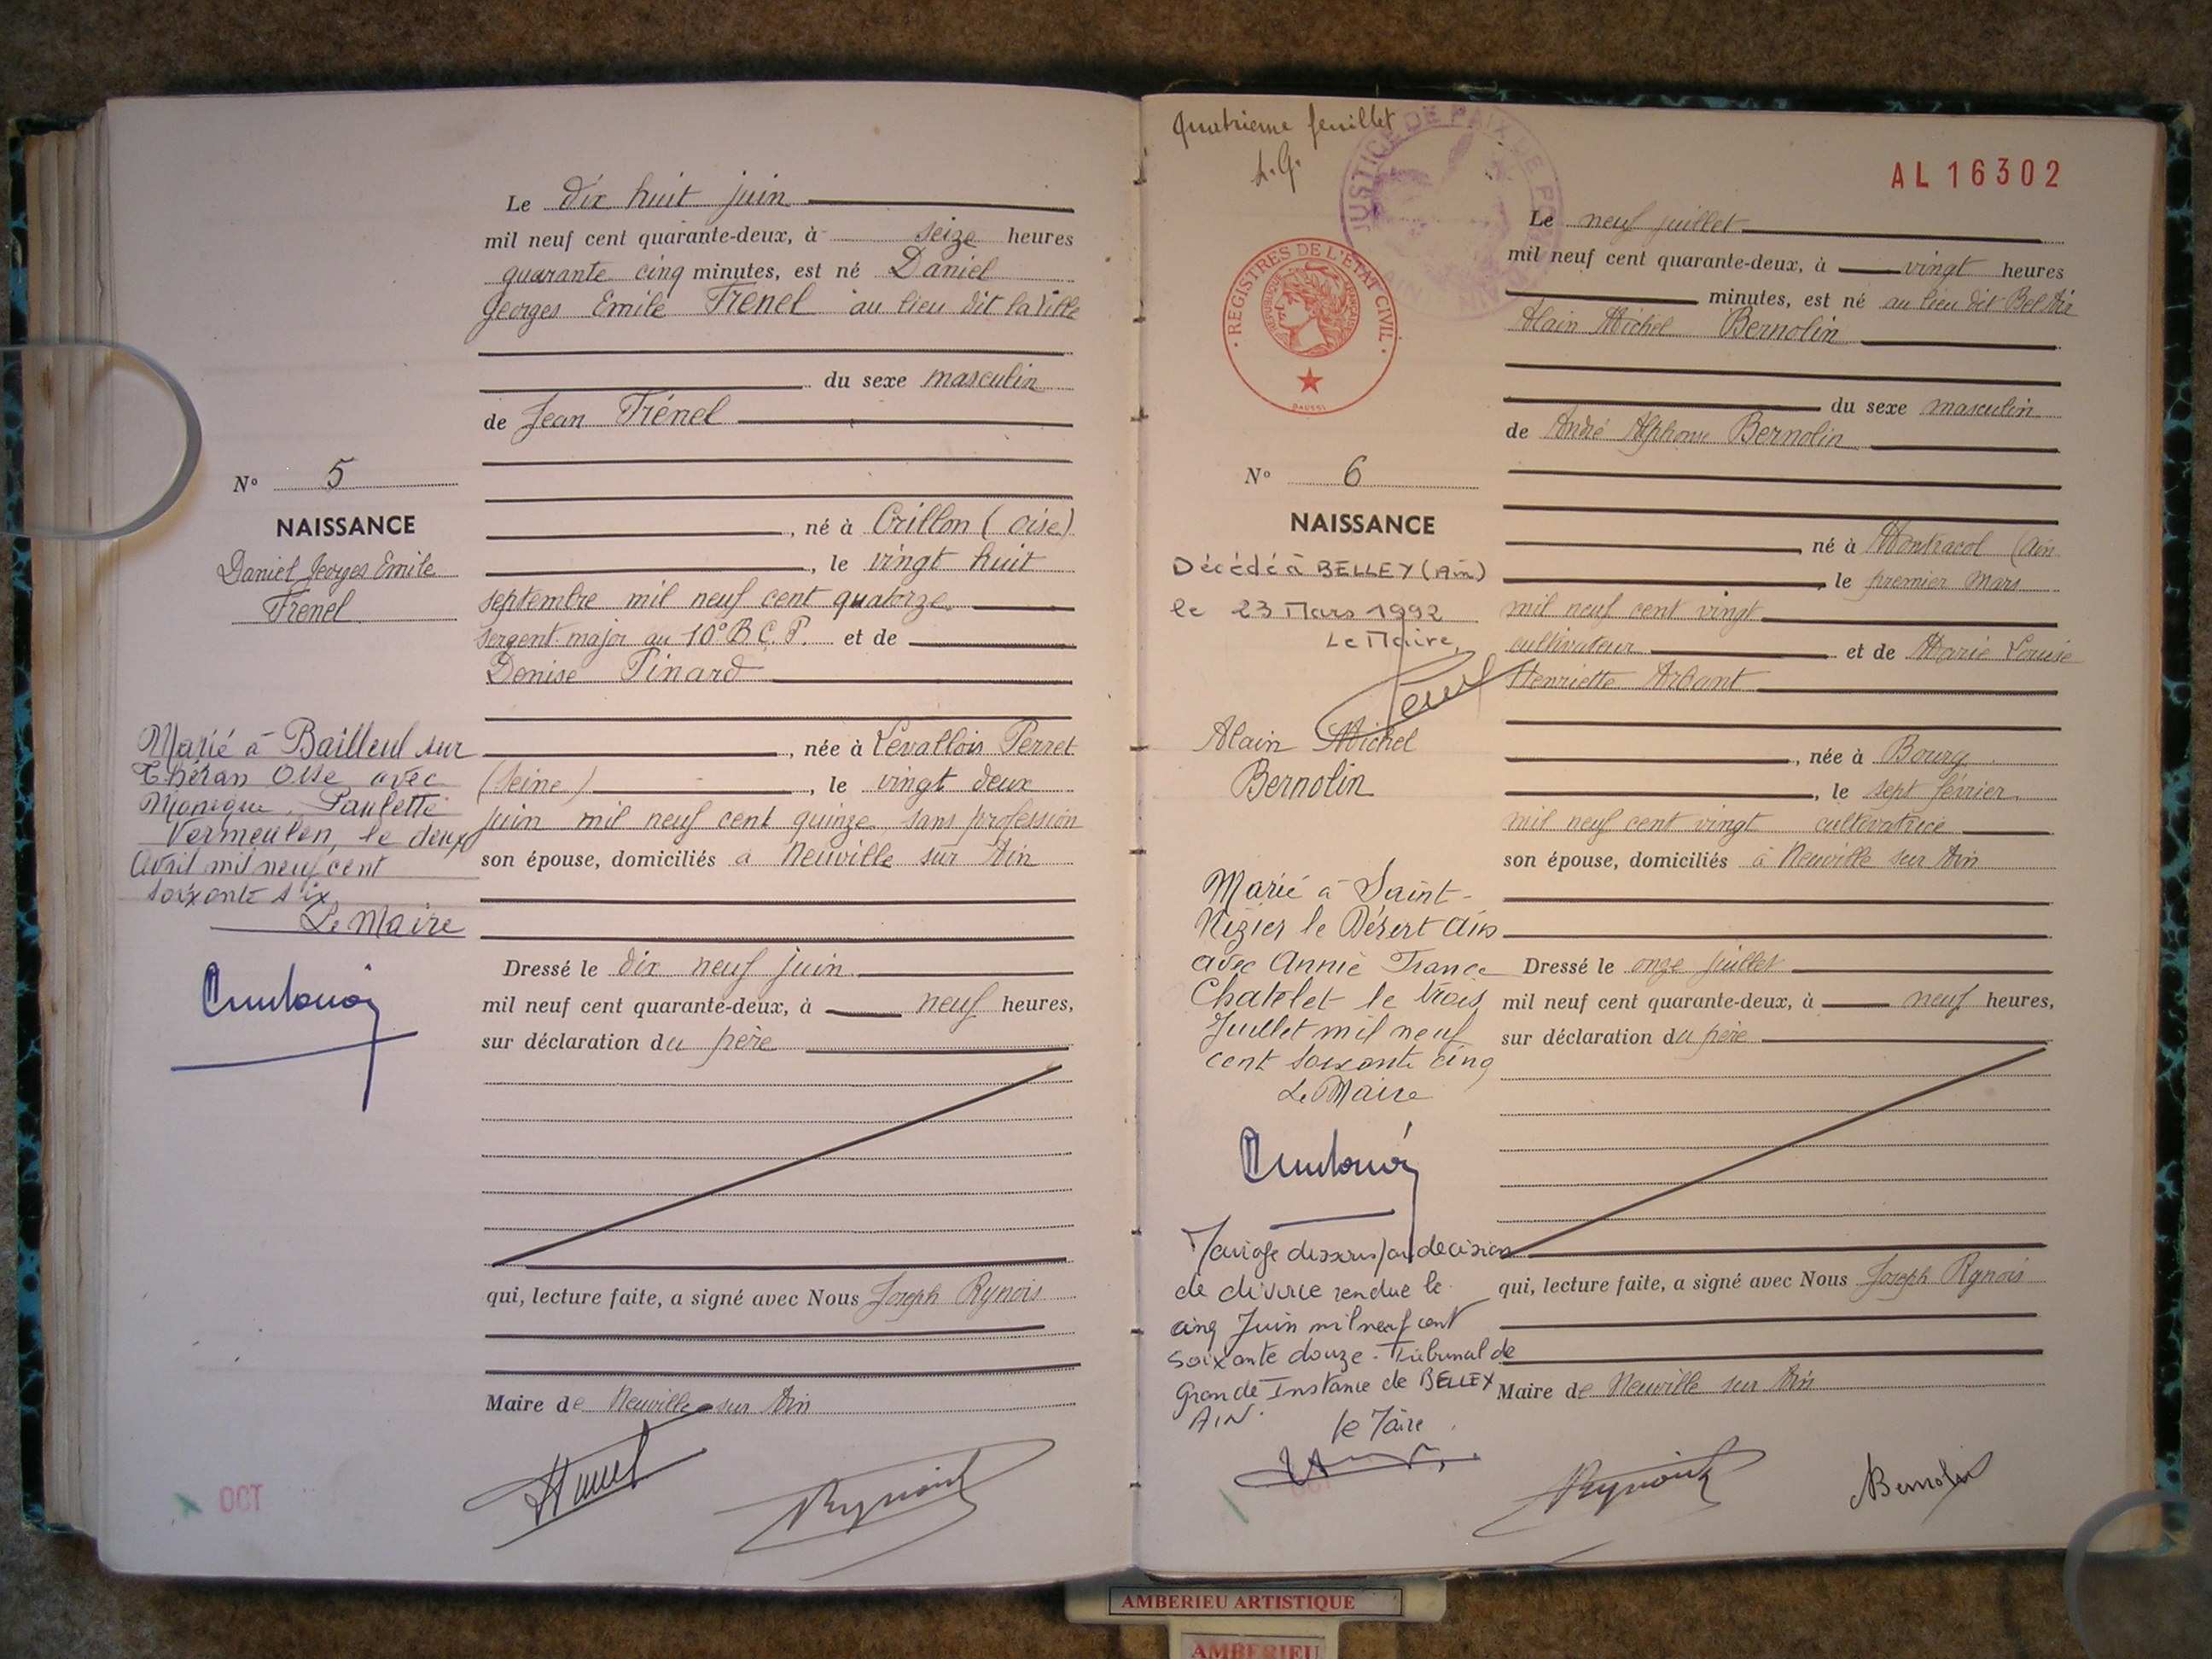 Le dix huit juin
mil neuf cent quarante-deux, à seize heures
quarante cinq minutes, est né Daniel
Georges Emile Frenel au lieu dit la Ville
du sexe masculin
de Jean Frénel
, né à Crillon (Oise)
, le vingt huit
septembre mil neuf cent quatorze
sergent-major au 10° B.C.P. et de
Denise Pinard
, née à Levallois Perret
(Seine), le vingt deux
juin mil neuf cent quinze, sans profession
son épouse, domiciliés à Neuville sur Ain
Dressé le dix neuf juin
mil neuf cent quarante-deux, à neuf heures,
sur déclaration du père
qui, lecture faite, a signé avec Nous Joseph Rynois
Maire de Neuville sur Ain
N° 5
NAISSANCE
Daniel Georges Emile
Frenel
Marié à Bailleul sur
Théran Oise avec
Monique Paulette
Vermeulen, le deux
Avril mil neuf cent
soixante six
Le Maire
OCT
Quatrieme feuillet
JUSTICE DE PAIX DE
AL 16302
REGISTRES DE L'ÉTAT CIVIL
RÉPUBLIQUE FRANÇAISE
N° 6
NAISSANCE
Décédé à BELLEY (Ain)
le 23 Mars 1992
Le Maire,
Alain Michel
Bernolin
Marié à Saint-
Nizier le Désert Ain
avec Annie France
Chatelet le trois
Juillet mil neuf
cent soixante cinq
Le Maire
Mariage dissous par decision
de divorce rendue le
cinq Juin mil neuf cent
soixante douze - Tribunal de
Grande Instance de BELLEY
AIN.
le Maire
Le neuf juillet
mil neuf cent quarante-deux, à vingt heures
minutes, est né au lieu dit Bel Air
Alain Michel Bernolin
du sexe masculin
de André Alphonse Bernolin
, né à Montracol (Ain
, le premier Mars
mil neuf cent vingt
cultivateur et de Marie Louise
Henriette Arbant
, née à Bourg
, le sept février
mil neuf cent vingt cultivatrice
son épouse, domiciliés à Neuville sur Ain
Dressé le onze juillet
mil neuf cent quarante-deux, à neuf heures,
sur déclaration du père
qui, lecture faite, a signé avec Nous Joseph Rynois
Maire de Neuville sur Ain
Bernolin
AMBERIEU ARTISTIQUE
AMBERIEU